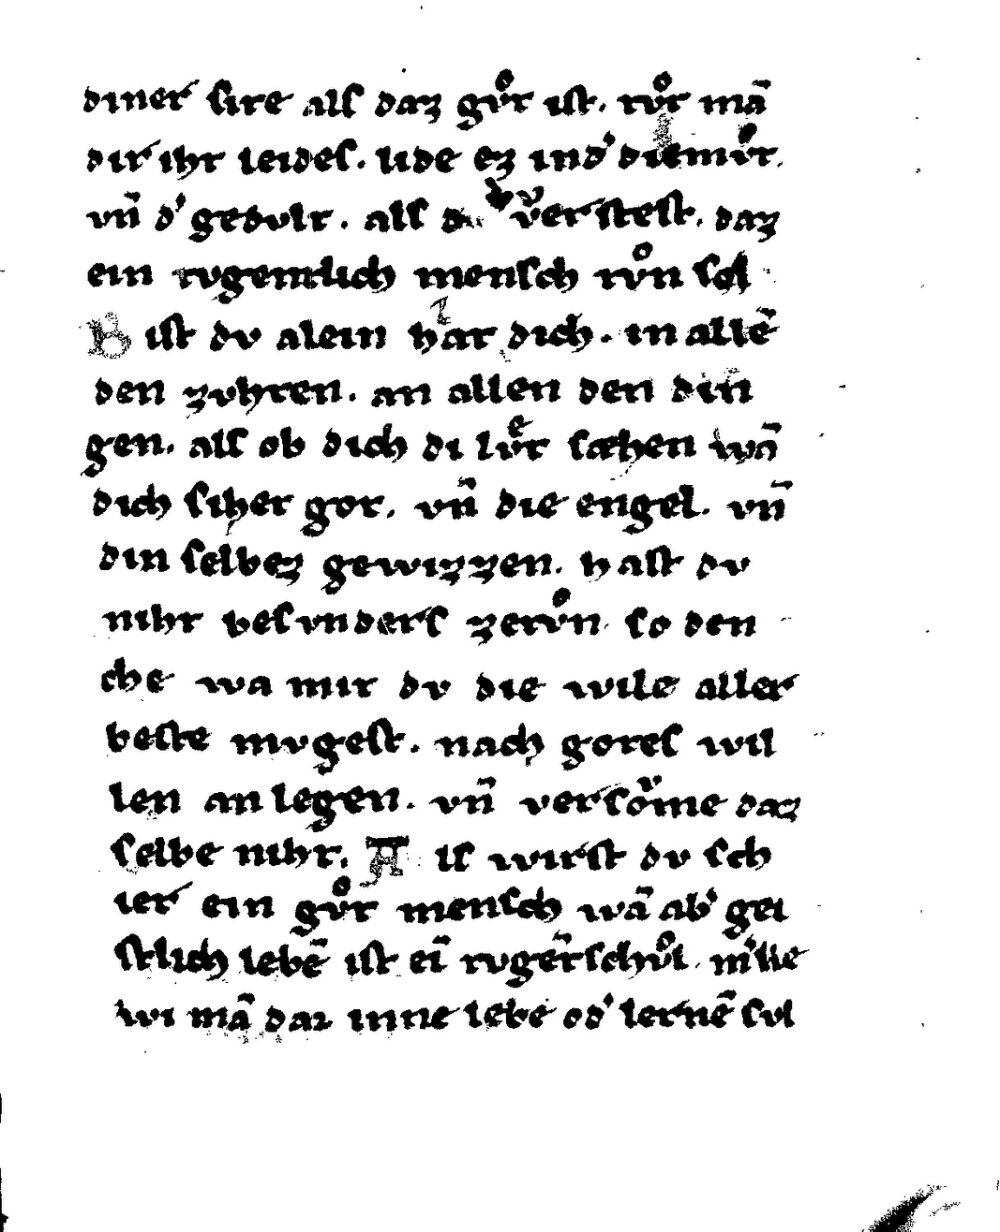 diner ſite alſ daz gůt iſt. tůt mā
dir iht leideſ. lide ez in d' diemůt.
vn̄ d' gedvlt. alſ dv v̓erſteſt. daz
ein tvgentlich menſch tůn ſol
B iſt dv alein hat dich. in allē
den zvhten. an allen den din
gen. alſ ob dich di lvͤt ſæhen wā
dich ſiher got. vn̄ die engel. vn̄
din ſelbez gewizzen. haſt dv
niht beſvnderſ zetůn ſo den
che wa mit dv die wile aller
beſte mvgeſt. nach goteſ wil
len an legen. vn̄ verſovme daz
ſelbe niht. A lſ wirſt dv ſch
ier ein gůt menſch wā ab' gei
ſtlich lebē iſt eī tvgēt ſchůl. m'ke
wi mā dar inne lebe od' lernē ſvl